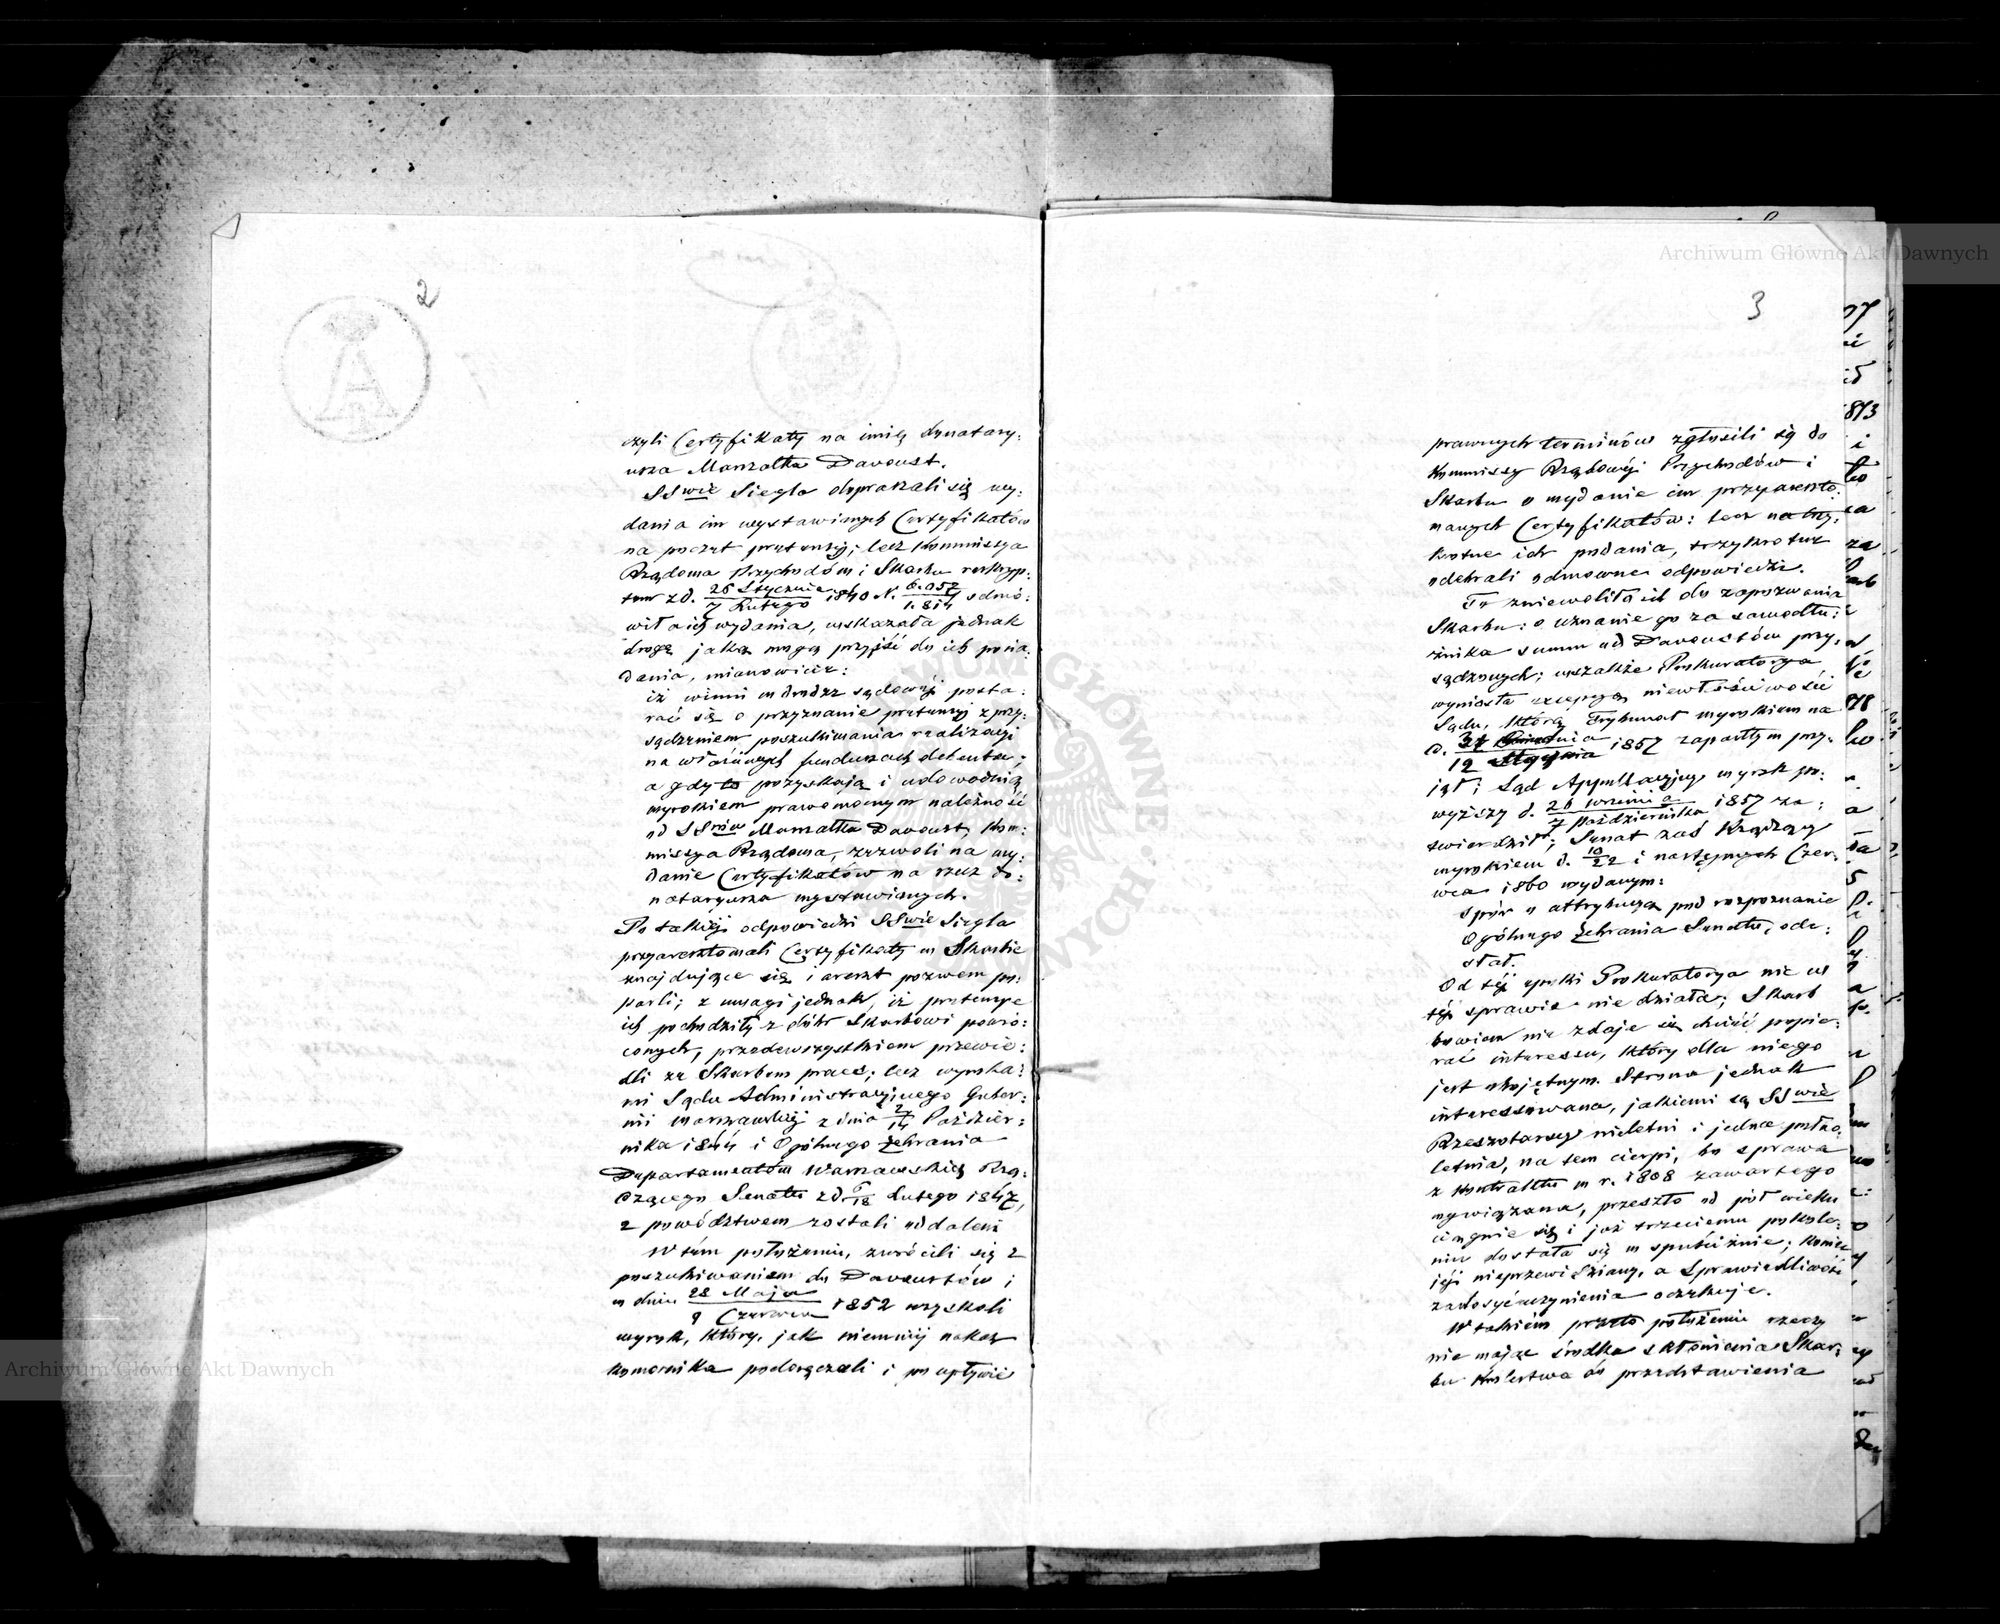 2
czyli Certyfikaty na imię donatary:
usza Marszałka Davoust.
SSwie Siegla dopraszali się wy:
dania im wystawionych Certyfikatów
na poczet pretensyi; lecz Kommissya
Rządowa Przychodów i Skarbu reskryp:
tem z d. 26 Stycznia / 7 Lutego 1840 N. 6.057 / 1.814 odmó:
wiła ich wydania, wskazała jednak
drogę jaką mogą przyjść do ich posia:
dania, mianowicie:
iż winni w drodze sądowéj posta:
rać się o przyznanie pretensyi z przy:
sądzeniem poszukiwania realizacyi
na własnych funduszach debenta;
a gdy to pozyskają i udowodnią
wyrokiem prawomocnym należność
od SSrów Marszałka Davoust, Kom:
missya Rządowa, zezwoli na wy:
danie Certyfikatów na rzecz do:
nataryusza wystawionych.
Po takiéj odpowiedzi SSwie Siegla
przyaresztowali Certyfikaty w Skarbie
znajdujące się i areszt pozwem po:
parli; z uwagi jednak, iż pretensye
ich pochodziły z dóbr Skarbowi powró:
conych, przedewszystkiem przewie:
dli ze Skarbem proces; lecz wyroka:
mi Sądu Administracyjnego Guber:
nii Warszawskiéj z dnia 2/14 Paździer:
nika 1844 i Ogólnego Zebrania
Departamentów Warszawskich Rzą:
dzącego Senatu z d. 6/18 Lutego 1847,
z powództwem zostali oddaleni
W tém położeniu, zwrócili się z
poszukiwaniem do Davoustów i
w dniu 28 Maja / 9 Czerwca 1852 uzyskali
wyrok, który, jak niemniéj nakaz
komornika podoręczali i po upływie
3
prawnych terminów zgłosili się do
Kommissyi Rządowéj Przychodów i
Skarbu o wydanie im przyareszto:
wanych Certyfikatów: lecz na trzy:
krotne ich podania, trzykrotnie
odebrali odmowne odpowiedzi.
To zniewoliło ich do zapozwania
Skarbu: o uznanie go za samodłu:
żnika summ od Davoustów przy:
sądzonych; wszakże Prokuratorya
wyniosła excepcyą niewłaściwości
Sądu, którą Trybunał wyrokiem na
d. 31 / 12 Stycznia 1857 zapadłym przy:
jął; Sąd Appellacyjny wyrok po:
wyższy d. 26 Września / 7 Października 1857 za:
twierdził; Senat zaś Rządzący
wyrokiem d. 10/22 i następnych Czer:
wca 1860 wydanym:
spór o attrybucyą pod rozpoznanie
Ogólnego Zebrania Senatu, ode:
słał.
Od téj epoki Prokuratorya nic w
téj sprawie nie działa; Skarb
bowiem nie zdaje się chcieć popie:
rać interessu, który dla niego
jest obojętnym. Strona jednak
interessowana, jakiemi są SSwie
Rzeszotarscy nieletni i jedna pełno:
letnia, na tem cierpi, bo sprawa
z Kontraktu w r. 1808 zawartego
wywiązana, przeszło od pół wieku
ciągnie się i już trzeciemu pokole:
niu dostała się w spuściźnie; koniec
jéj nieprzewidziany, a Sprawiedliwość
zadosyćuczynienia oczekuje.
W takiém przeto położeniu rzeczy
nie mając środka skłonienia Skar:
bu Królestwa do przedstawienia